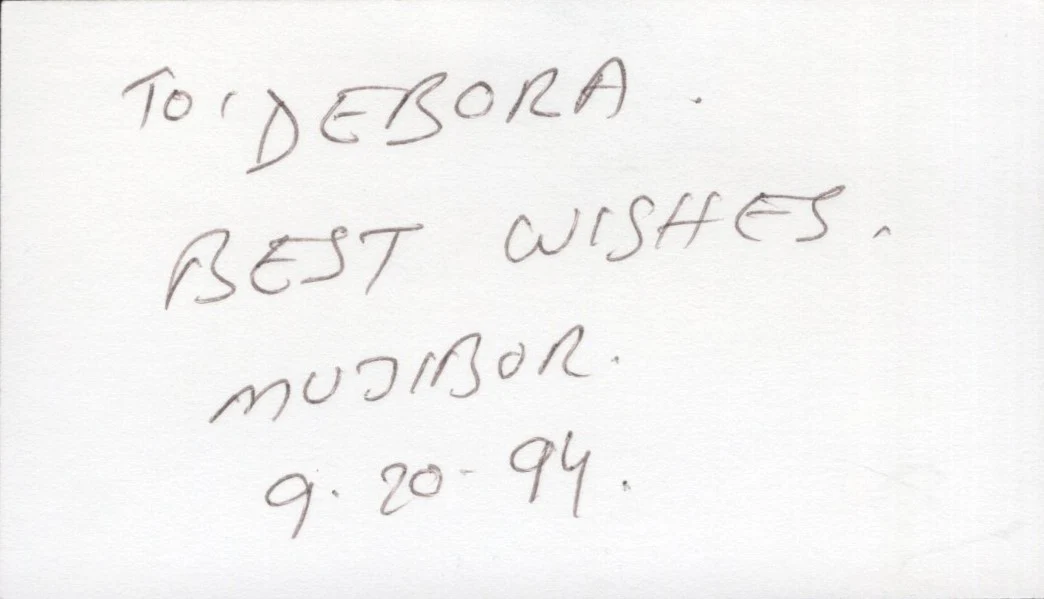 TO, DEBORA.
BEST WISHES.
MUJIBOR.
9.20-94.